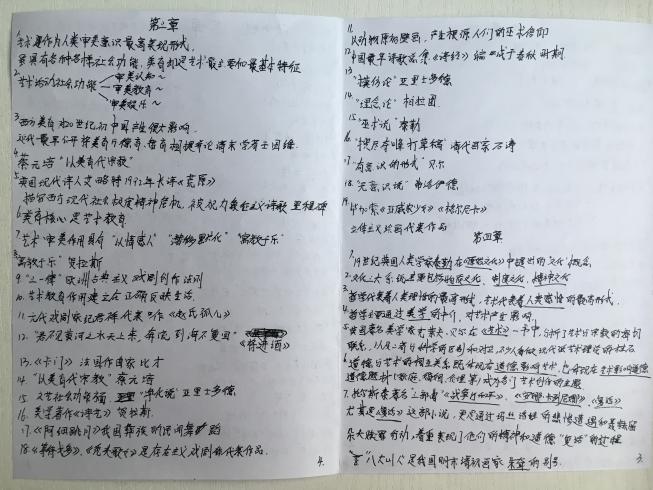 第二章
1. 艺术是作为人类审美意识最高表现形式,
虽具有各种各样社会功能,审美却是艺术最主要和最基本特征
2. 艺术活动社会功能 审美认知~
审美教育~
审美娱乐~
3. 西方美育 20世纪初中国产生很大影响.
4. 蔡元培"以美育代宗教"
5. 英国现代诗人艾略特1922年长诗《荒原》
描写西方现代社会 精神危机,被视为象征主义诗歌里程碑
6. 美育核心是艺术教育
7. 艺术审美作用具有"以情感人""潜移默化""寓教于乐"
8. "寓教于乐"贺拉斯
9. "三一律"欧洲古典主义戏剧创作法则
10. 艺术教育作用建立在正确反映生活.
11. 元代戏剧家纪君祥代表作《赵氏孤儿》
12. "君不见黄河之水天上来,奔流到海不复回"
《将进酒》
13. 《卡门》法国作曲家比才
14. "以美育代宗教"蔡元培
15. 文艺社会功能 "净化说"亚里士多德
16. 美学著作《诗艺》贺拉斯.
17. 《阿细跳月》我国彝族的民间舞蹈
18. 《等待戈多》、《秃头歌女》是存在主义戏剧 代表作品.
4.
11. 以动物 的壁画,产生根源人们的巫术信仰
12. 中国最早诗歌总集《诗经》编 成于春秋时期
13. "模仿论"亚里士多德
14. "理念论"柏拉图
15. "巫术说"泰勒
16. "搜尽奇峰打草稿"清代画家石涛
17. "有意识的形式"贝尔
18. "无意识说"弗洛伊德
19. 毕加索《亚威农少女》《格尔尼卡》
立体主义绘画代表作品
第四章
1. 19世纪英国人类学家泰勒在《原始文化》中提出的文化概念
2. 文化三大系统主要包括物质文化、制度文化、精神文化
3. 哲学代表着人类理性的最高形式,艺术代表着人类感性的最高形式.
4. 哲学主要通过美学的中介,对艺术产生影响.
5. 英国著名美学家克莱夫·贝尔在《艺术》一书中,分析了艺术与宗教的密切
联系,
6. 道德与艺术的相互关系既体现在道德影响艺术,也体现在艺术影响道德
道德题材(家庭、婚姻、伦理等)成为各门艺术创作的主题
7. 托尔斯泰著名三部曲《战争与和平》、《安娜·卡列尼娜》、《复活》
尤其是《复活》这部小说,更是通过玛丝洛娃的悲惨遭遇和聂赫留
朵夫 行动,着重表现了他们的精神和道德"复活"的过程
8. "八大山人"是我国明末清初画家朱耷的别号.
3.